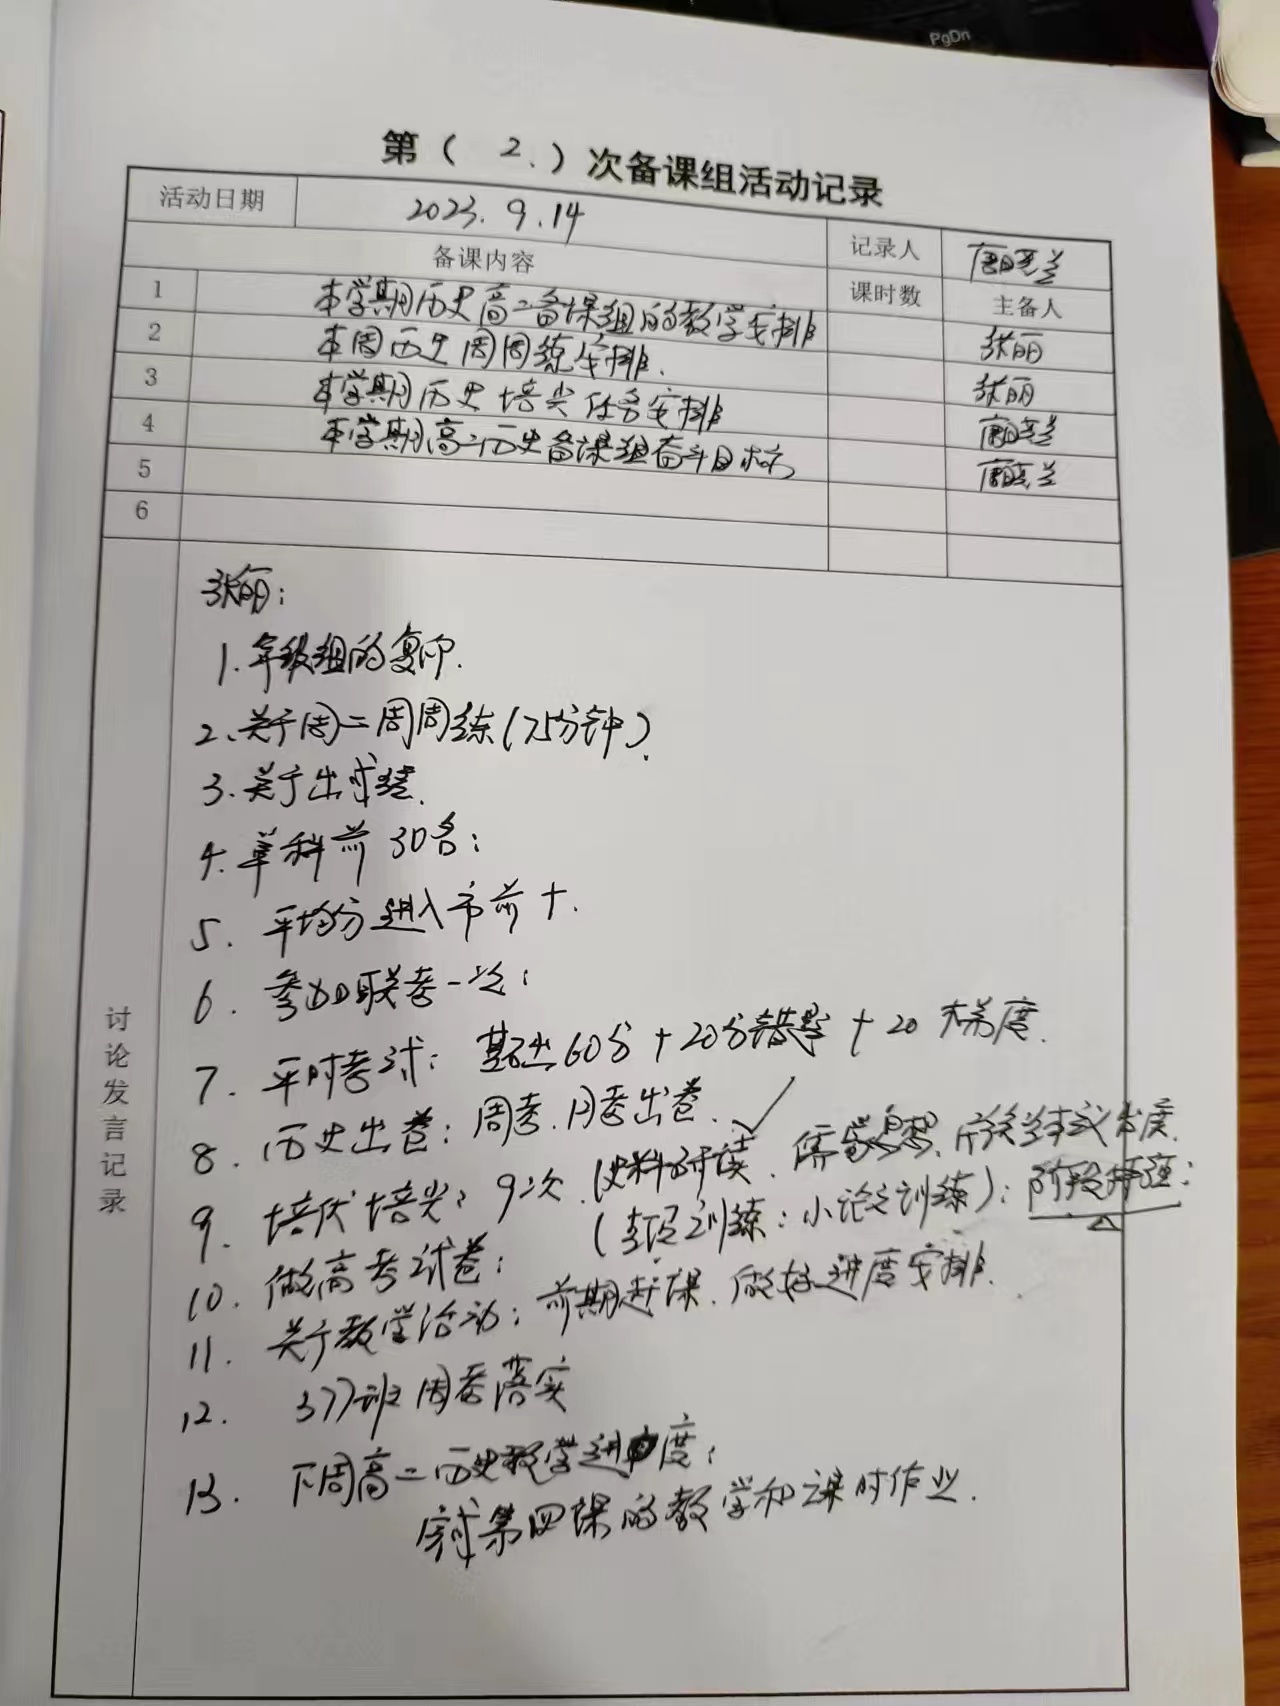 PgDn
第（ 2. ）次备课组活动记录
活动日期 2023.9.14 记录人
备课内容 课时数 主备人
1 本学期历史高二备课组的教学安排 张丽
2 本周历史周周练安排. 张丽
3 本学期历史培尖任务安排
4 本学期高二历史备课组奋斗目标
5
6
讨论发言记录
张丽：
1.年级组的复印.
2.关于周二周周练(75分钟).
3.关于出成绩.
4.单科前30名：
5. 平均分进入市前十.
6. 参加联考一次：
7. 平时考试：基础60分+20分错题+20梯度.
8. 历史出卷：周考.月考出卷.✓
9. 培优培尖：9次.(史料研读.儒家思想.
10. 做高考试卷： 训练：小论文训练)：
11. 关于教学活动：前期赶课.做好进度安排.
12. 377班周考落实
13. 下周高二历史教学进度：
完成第四课的教学和课时作业.